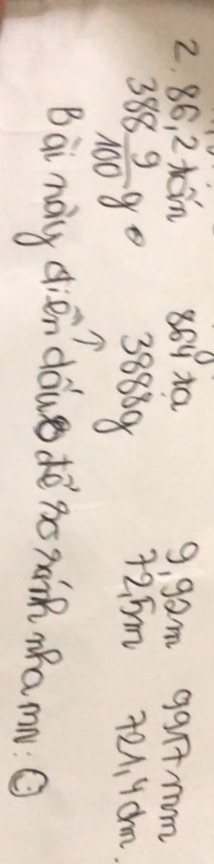 2. 86,2 tấn 864 tạ 9,92m 9917mm
388 9/100 g 3888g 72,5m 721,4dm.
Bài này điền dấu để so sánh nha mn :)